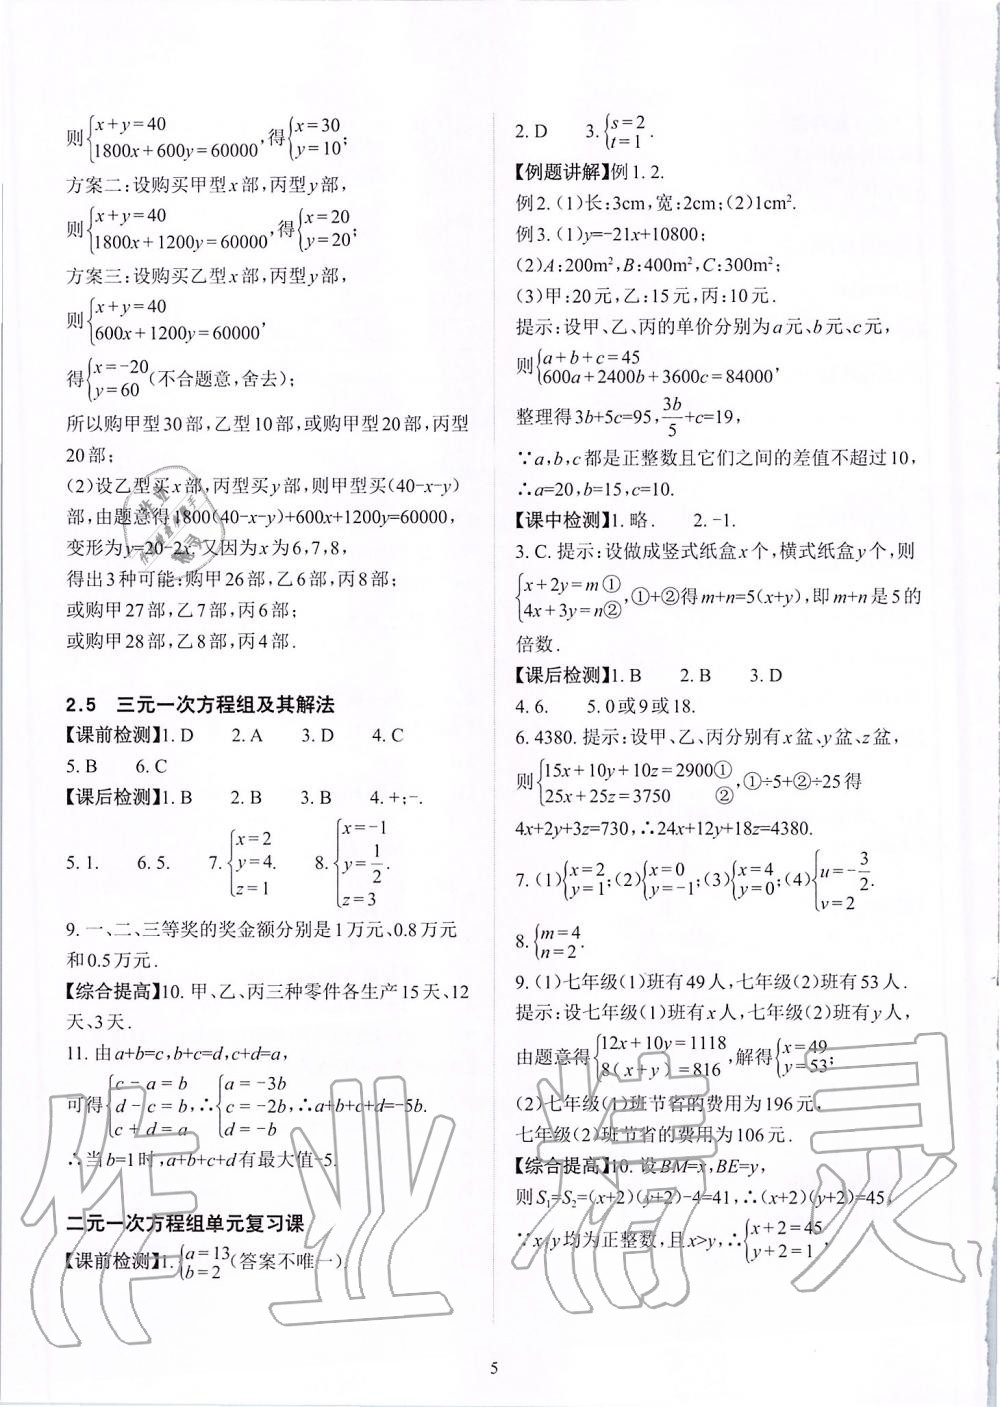 则{x+y=40
1800x+600y=60000,得{x=30
y=10;
方案二:设购买甲型x部,丙型y部,
则{x+y=40
1800x+1200y=60000,得{x=20
y=20;
方案三:设购买乙型x部,丙型y部,
则{x+y=40
600x+1200y=60000,
得{x=-20
y=60(不合题意,舍去);
所以购甲型30部,乙型10部,或购甲型20部,丙型
20部;
(2)设乙型买x部,丙型买y部,则甲型买(40-x-y)
部,由题意得1800(40-x-y)+600x+1200y=60000,
变形为y=20-2x.又因为x为6,7,8,
得出3种可能:购甲26部,乙6部,丙8部;
或购甲27部,乙7部,丙6部;
或购甲28部,乙8部,丙4部.
2.5 三元一次方程组及其解法
【课前检测】1. D 2. A 3. D 4. C
5. B 6. C
【课后检测】1. B 2. B 3. B 4. +;-.
5. 1. 6. 5. 7. {x=2
y=4.
z=1 8. {x=-1
y=1/2.
z=3
9. 一、二、三等奖的奖金额分别是1万元、0.8万元
和0.5万元.
【综合提高】10. 甲、乙、丙三种零件各生产15天、12
天、3天.
11. 由a+b=c,b+c=d,c+d=a,
可得{c-a=b
d-c=b,
c+d=a ∴{a=-3b
c=-2b,
d=-b ∴a+b+c+d=-5b.
∴当b=1时,a+b+c+d有最大值-5.
二元一次方程组单元复习课
【课前检测】1. {a=13
b=2(答案不唯一)
2. D 3. {s=2
t=1.
【例题讲解】例1. 2.
例2. (1)长:3cm,宽:2cm;(2)1cm².
例3. (1)y=-21x+10800;
(2)A:200m²,B:400m²,C:300m²;
(3)甲:20元,乙:15元,丙:10元.
提示:设甲、乙、丙的单价分别为a元、b元、c元,
则{a+b+c=45
600a+2400b+3600c=84000,
整理得3b+5c=95,3b/5+c=19,
∵a,b,c都是正整数且它们之间的差值不超过10,
∴a=20,b=15,c=10.
【课中检测】1. 略. 2. -1.
3. C. 提示:设做成竖式纸盒x个,横式纸盒y个,则
{x+2y=m①
4x+3y=n②,①+②得m+n=5(x+y),即m+n是5的
倍数.
【课后检测】1. B 2. B 3. D
4. 6. 5. 0或9或18.
6. 4380. 提示:设甲、乙、丙分别有x盆、y盆、z盆,
则{15x+10y+10z=2900①
25x+25z=3750 ②,①÷5+②÷25得
4x+2y+3z=730,∴24x+12y+18z=4380.
7. (1){x=2
y=1;(2){x=0
y=-1;(3){x=4
y=0;(4){u=-3/2.
v=2
8. {m=4
n=2.
9. (1)七年级(1)班有49人,七年级(2)班有53人.
提示:设七年级(1)班有x人,七年级(2)班有y人,
由题意得{12x+10y=1118
8(x+y)=816,解得{x=49
y=53;
(2)七年级(1)班节省的费用为196元,
七年级(2)班节省的费用为106元.
【综合提高】10. 设BM=x,BE=y,
则S₁=S₂=(x+2)(y+2)-4=41,∴(x+2)(y+2)=45,
∵x,y均为正整数,且x>y,∴{x+2=45
y+2=1,
作业精灵
5